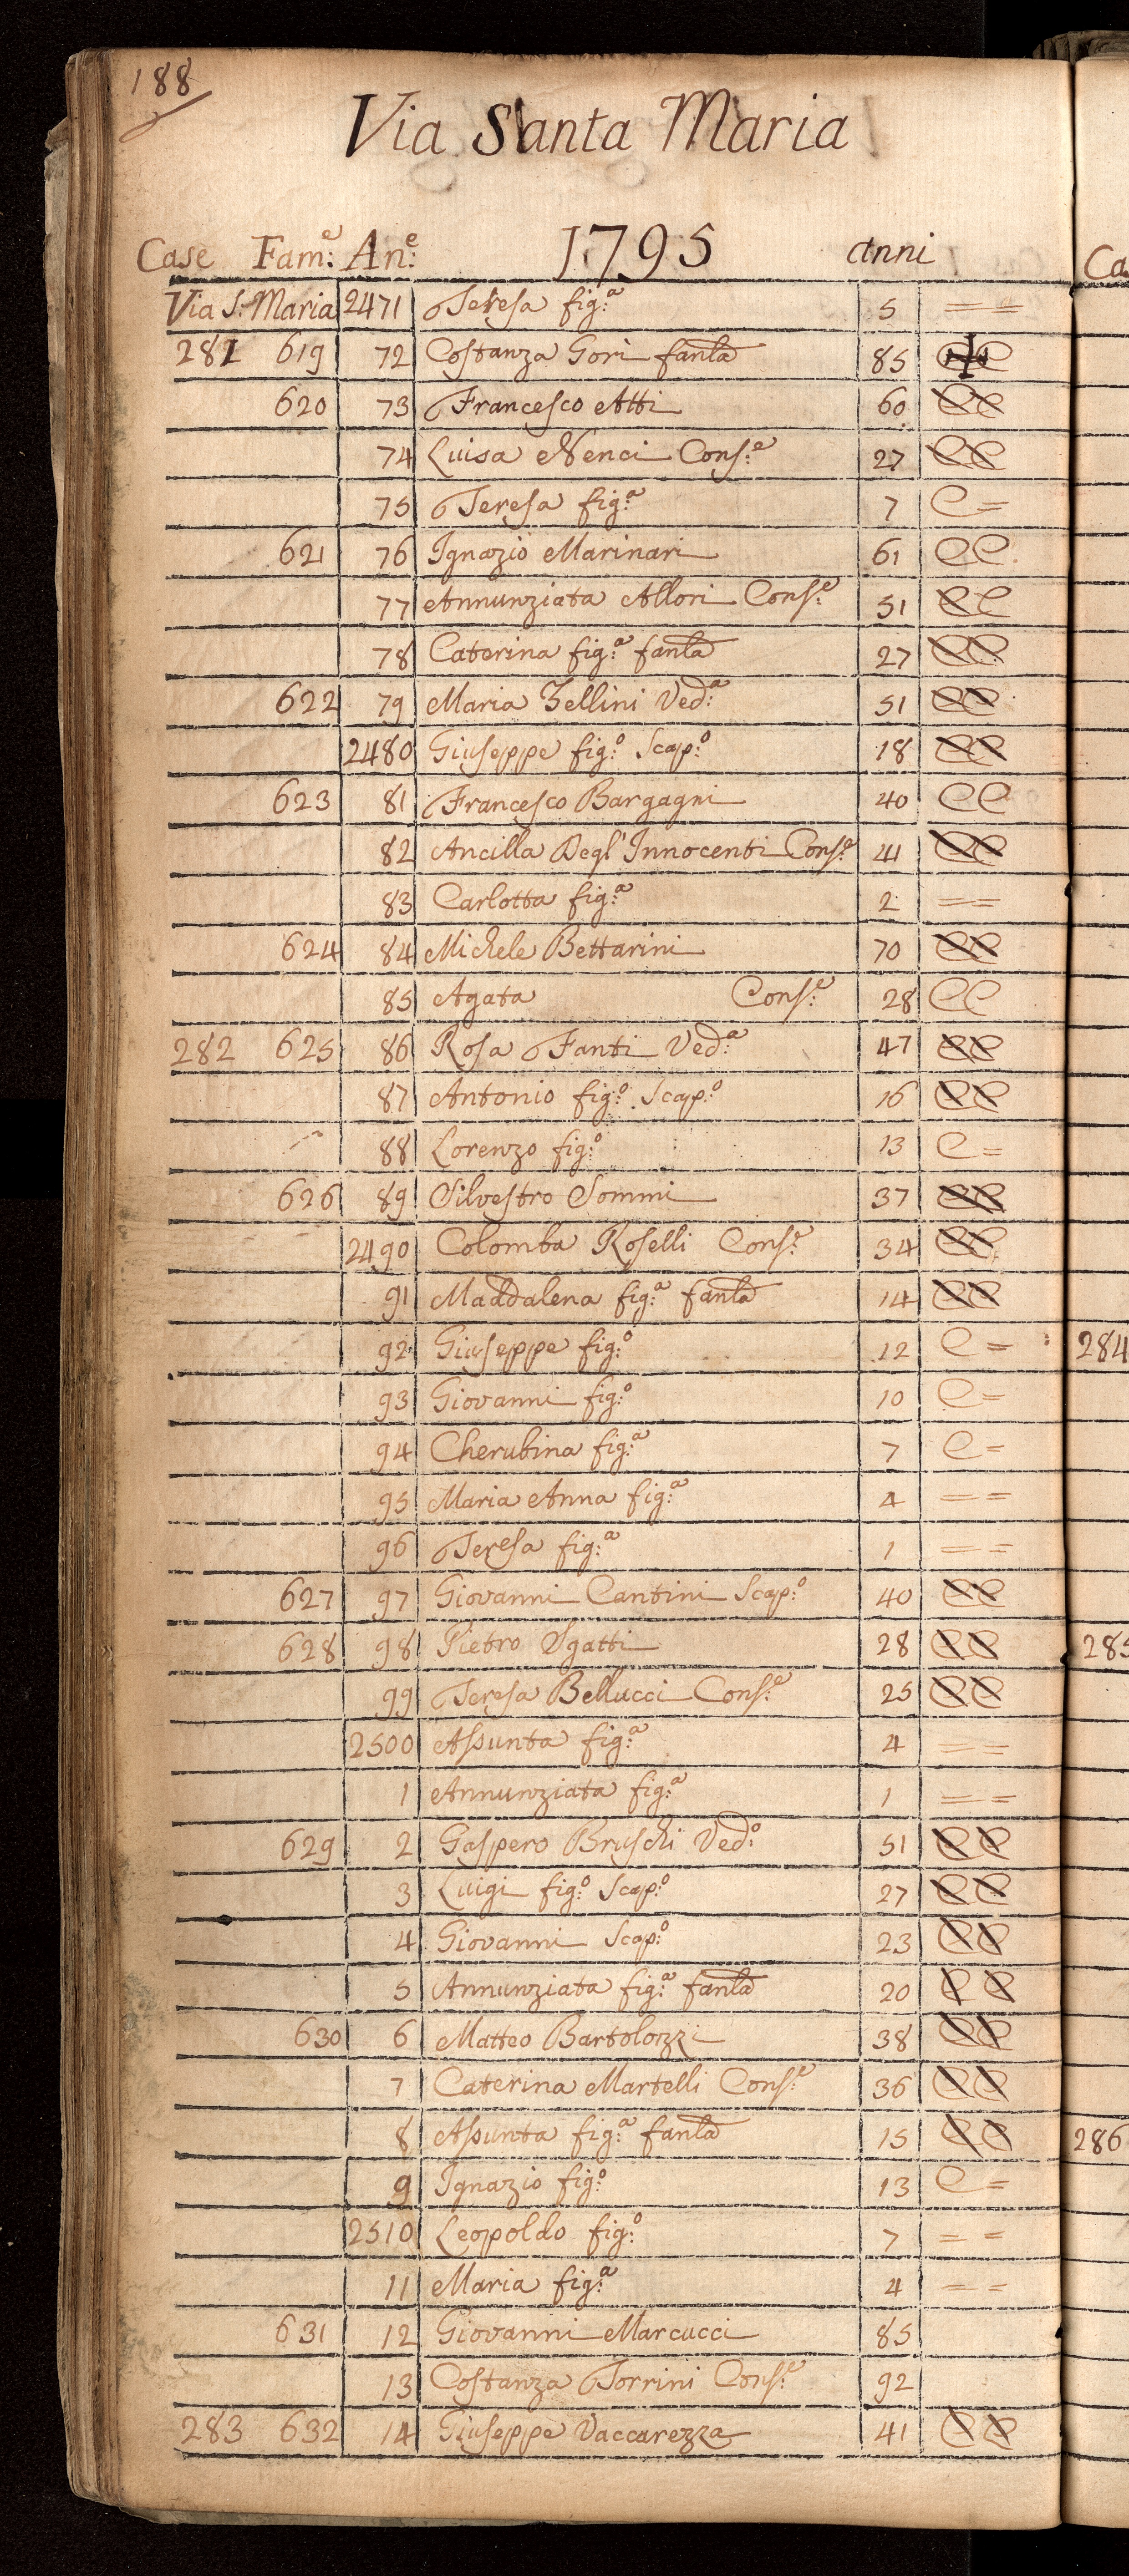 188
Via Santa Maria
Case Fam:e An:e 1795 anni
Via S: Maria 2471 Teresa fig:a 5 = =
281 619 72 Costanza Gori fanla 85 CC
620 73 Francesco Atti 60 CC
74 Luisa Nenci Cons:e 27 CC
75 Teresa fig:a 7 C =
621 76 Ignazio Marinari 61 CC
77 Annunziata Allori Cons:e 51 CC
78 Caterina fig:a fanla 27 CC
622 79 Maria Zellini Ved:a 51 CC
2480 Giuseppe fig:o Scap:o 18 CC
623 81 Francesco Bargagni 40 CC
82 Ancilla Degl'Innocenti Cons:e 41 CC
83 Carlotta fig:a 2 = =
624 84 Michele Bettarini 70 CC
85 Agata Cons:e 28 CC
282 625 86 Rosa Fanti Ved:a 47 CC
87 Antonio fig:o Scap:o 16 CC
88 Lorenzo fig:o 13 C =
626 89 Silvestro Sommi 37 CC
2490 Colomba Roselli Cons:e 34 CC
91 Maddalena fig:a fanla 14 CC
92 Giuseppe fig:o 12 C =
93 Giovanni fig:o 10 C =
94 Cherubina fig:a 7 C =
95 Maria Anna fig:a 4 = =
96 Teresa fig:a 1 = =
627 97 Giovanni Cantini Scap:o 40 CC
628 98 Pietro Sgatti 28 CC
99 Teresa Bellucci Cons:e 25 CC
2500 Assunta fig:a 4 = =
1 Annunziata fig:a 1 = =
629 2 Gaspero Bruschi Ved:o 51 CC
3 Luigi fig:o Scap:o 27 CC
4 Giovanni Scap:o 23 CC
5 Annunziata fig:a fanla 20 CC
630 6 Matteo Bartolozzi 38 CC
7 Caterina Martelli Cons:e 36 CC
8 Assunta fig:a fanla 15 CC
9 Ignazio fig:o 13 C =
2510 Leopoldo fig:o 7 = =
11 Maria fig:a 4 = =
631 12 Giovanni Marcucci 85
13 Costanza Torrini Cons:e 92
283 632 14 Giuseppe Vaccarezza 41 CC
Ca
284
285
286